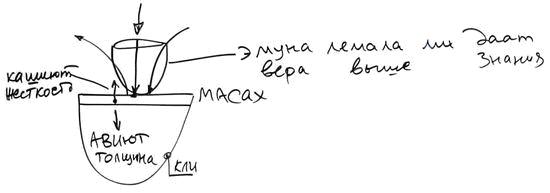 эмуна лемала ми даат
вера выше знания
кашиют
жесткость
МАСАХ
АВИЮТ
толщина
КЛИ